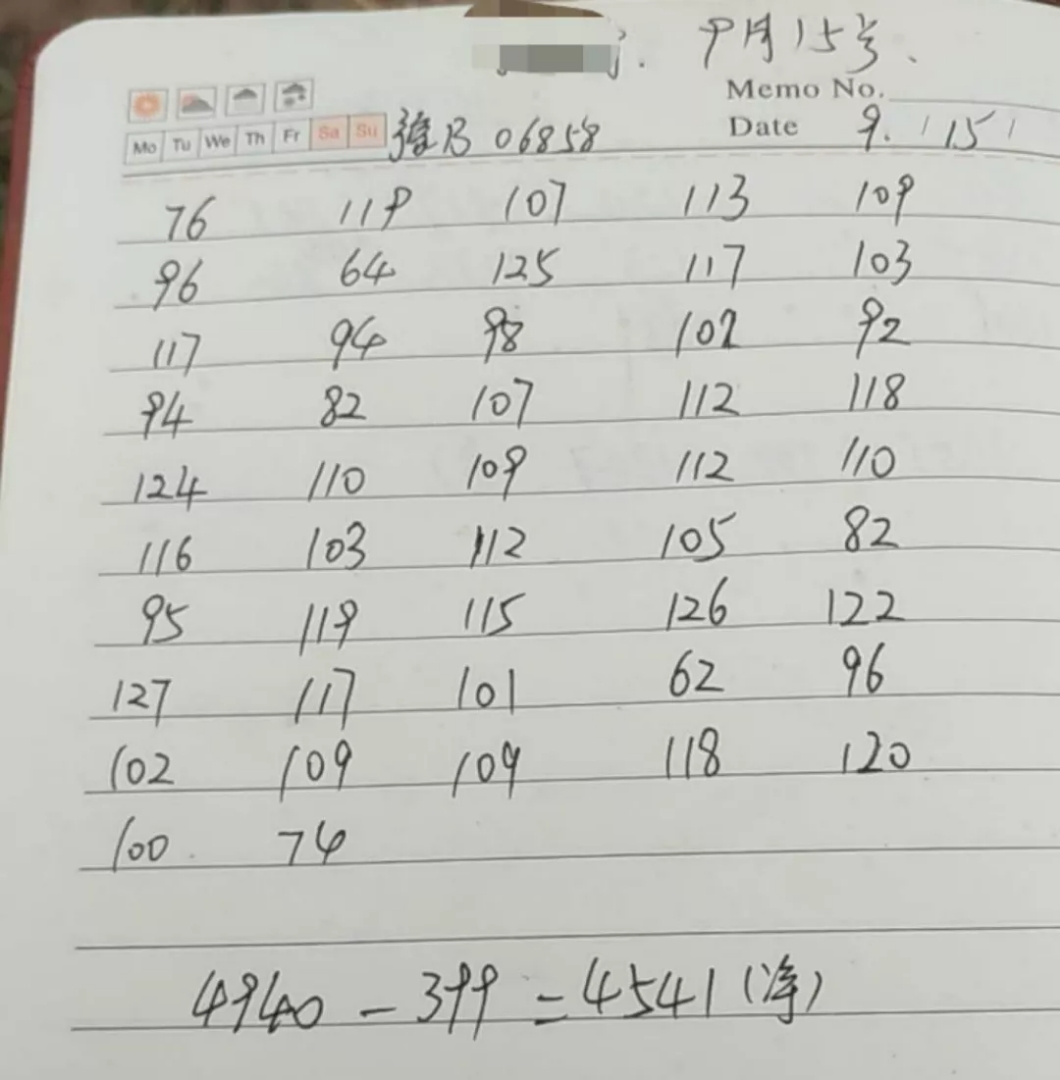 9月15号.
Memo No.
Mo Tu We Th Fr Sa Su 豫B 06858 Date 9. 15
76 119 107 113 109
96 64 125 117 103
117 94 98 102 92
94 82 107 112 118
124 110 109 112 110
116 103 112 105 82
95 119 115 126 122
127 117 101 62 96
102 109 109 118 120
100 74
4940-399=4541(净)